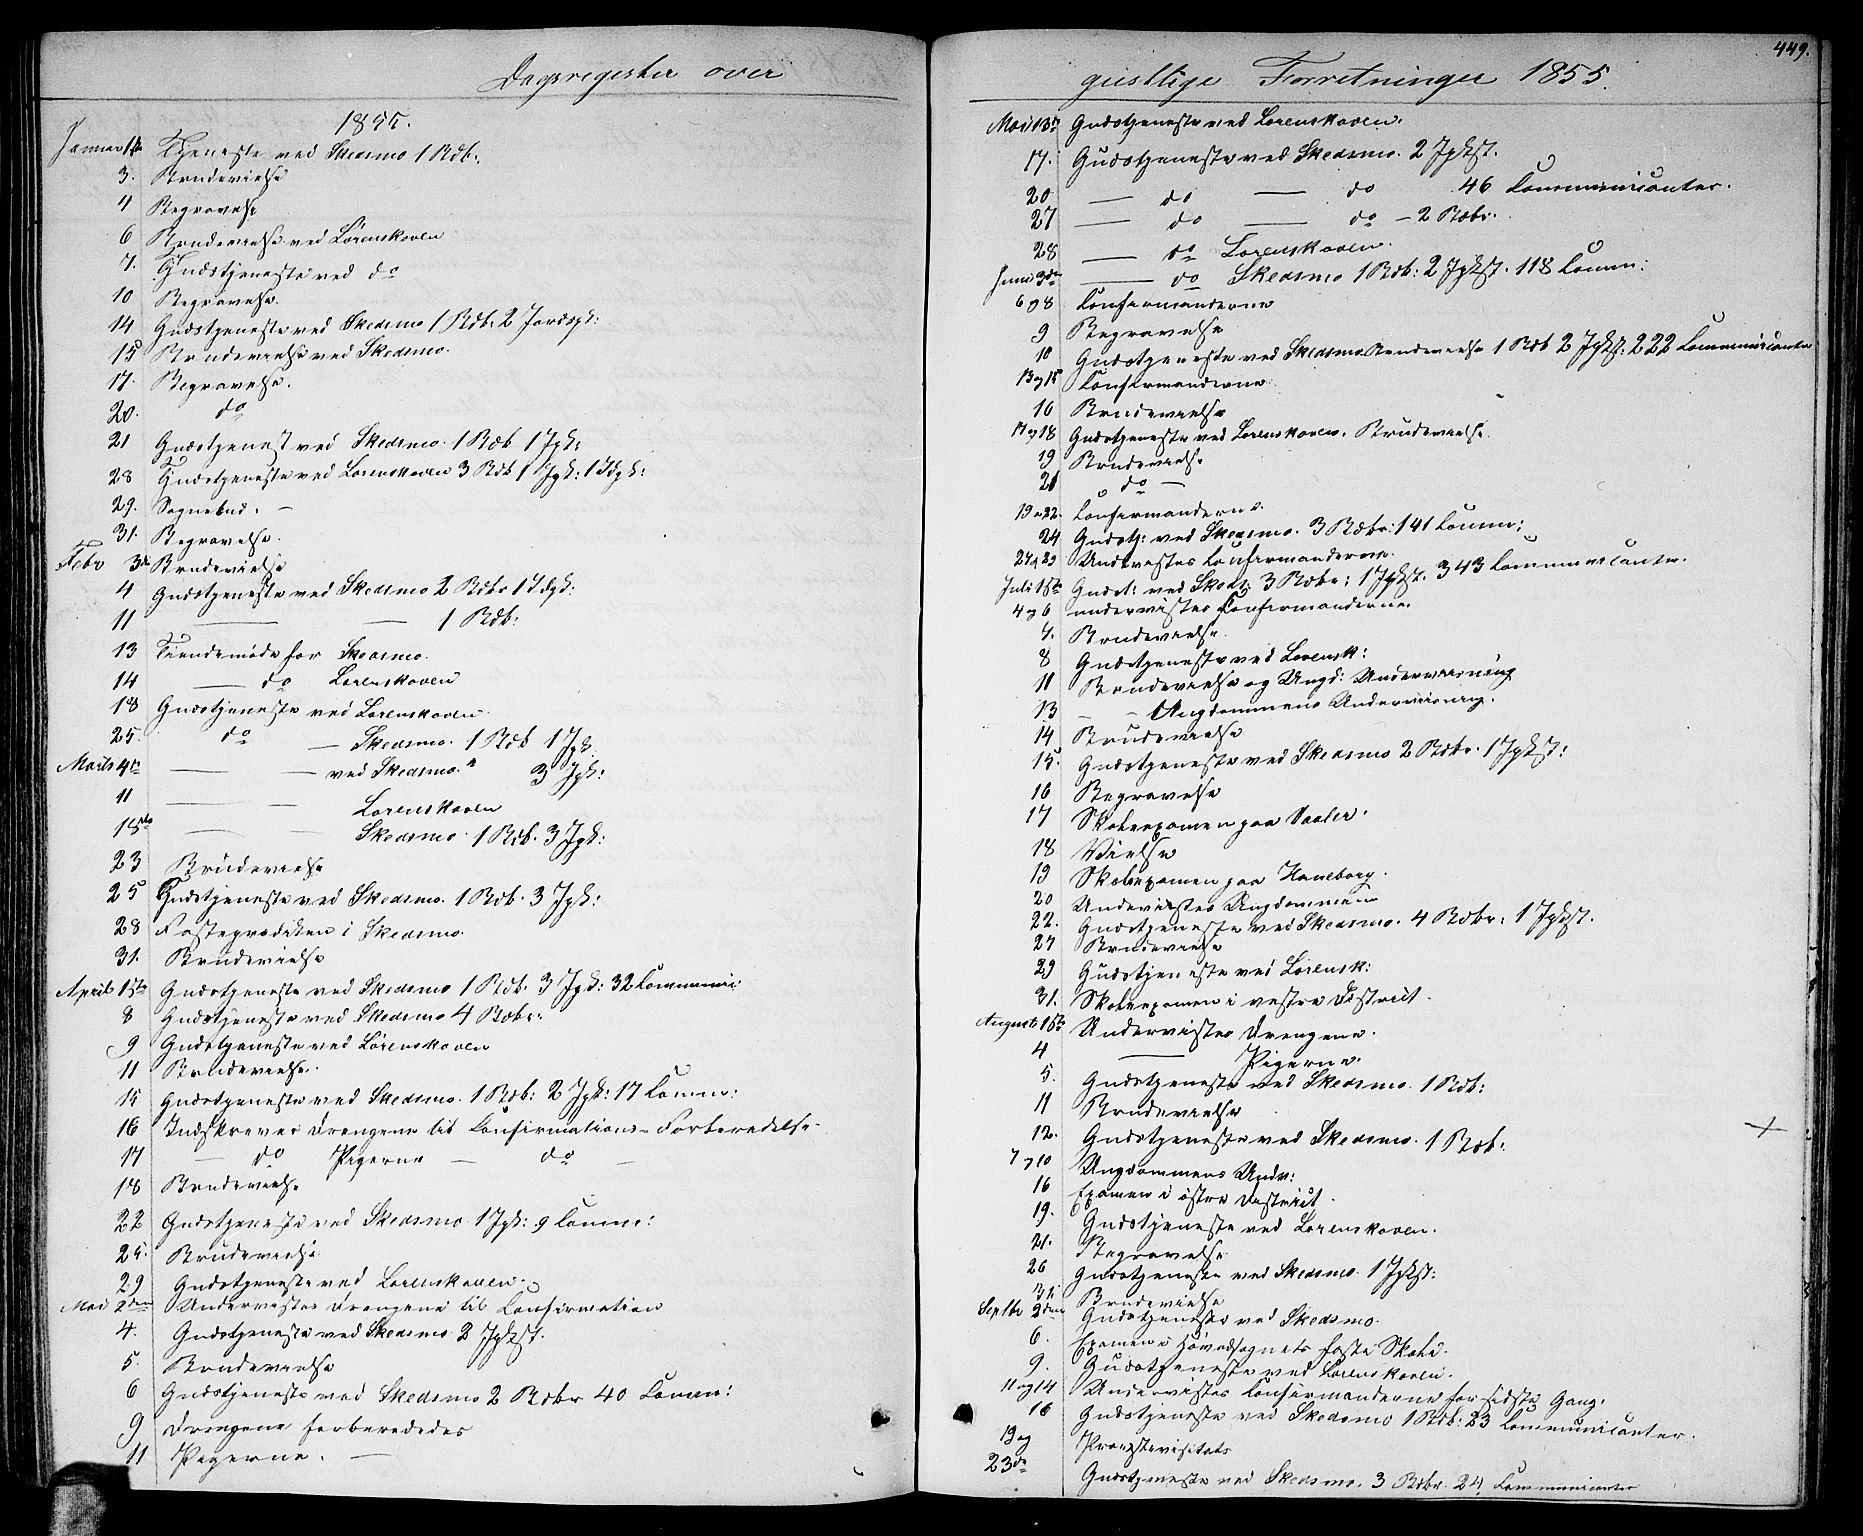 Dagsregister over
1855.
Januar 1ste Tjeneste ved Skedsmo 1 Bdb:
3. Brudevielse
4 Begravelse
6 Brudevielse ved Lørenskoven
7. Gudstjeneste ved do
10 Begravelse.
14 Gudstjeneste ved Skedsmo 1 Bdb: 2 Jordspk:
15 Brudevielse ved Skedsmo.
17. Begravelse.
20. do
21 Gudstjenest ved Skedsmo. 1 Bdb 1 Jpk:
28 Gudstjeneste ved Lorenskoven 3 Bdb 1 Jpk: 1 Idgk:
29. Sognebud. —
31. Begravelse.
Febr 3de Brudevielse
4 Gudstjeneste ved Skedsmo 2 Bdbr 1 Idgk:
11 — — 1 Bdb:
13 Tiendemøde for Skedsmo.
14 — do Lorenskoven
18 Gudstjeneste ved Lorenskoven.
25. do — Skedsmo. 1 Bdb 1 Jpk
Marts 4de — — ved Skedsmo. 3 Jpk:
11 — — Lorenskoven
18de — — Skedsmo 1 Bdb. 3 Jpk:
23 Brudevielse
25 Gudstjeneste ved Skedsmo. 1 Bdb. 3 Jpk:
28 Fasteprædiken i Skedsmo.
31. Brudevielse
April 1ste Gudstjeneste ved Skedsmo 1 Bdb. 3 Jpk: 32 Communic
8 Gudstjeneste ved Skedsmo 4 Bdbr:
9 Gudstjeneste ved Lørenskoven
11 Brudevielse.
15 Gudstjeneste ved Skedsmo. 1 Bdb: 2 Jpk: 17 Comm:
16 Indskreves Drengene til Confirmations-Forberedelse
17 — do Pigerne — do —
18 Brudevielse
22 Gudstjeneste ved Skedsmo 1 Jpk: 9 Comm:
25. Brudevielse
29 Gudstjeneste ved Lorenskoven.
Mai 2den Undervistes Drengene til Confirmation
4. Gudstjeneste ved Skedsmo 2 Jpkst.
5. Brudevielse
6 Gudstjeneste ved Skedsmo 2 Bdbr 40 Comm:
9 Drengene forberededes
11 Pigerne. —
449.
geistlige Forretninger 1855.
Mai 13de Gudstjeneste ved Lorenskoven.
17. Gudstjeneste ved Skedsmo. 2 Jpkst.
20 — do — do 46 Communicanter.
27 — do — do — 2 Bdbr.
28 — do Lorenskoven.
Juni 3de — do Skedsmo 1 Bdb: 2 Jpkst. 118 Comm:
6 og 8 Confirmanderne
9 Begravelse
10 Gudstjeneste ved Skedsmo Brudevielse 1 Bdb 2 Jpkst: 222 Communicanter
13 og 15 Confirmanderne
16 Brudevielse
17 og 18 Gudstjeneste ved Lorenskoven. Brudevielse.
19 Brudevielse
21 do —
19 og 22. Confirmanderne.
24 Gudstj: ved Skedsmo. 3 Bdbr: 141 Comm:
27 og 29 Undervistes Confirmanderne.
Juli 1ste Gudst: ved Skeds: 3 Bdbr: 1 Jpkst. 343 Communicanter.
4 og 6 undervistes Confirmanderne.
7. Brudevielse
8 Gudstjeneste ved Lorensk:
11 Brudevielse og Ungd: Underviisning
13 — Ungdommens Underviisning.
14 Brudevielse
15. Gudstjeneste ved Skedsmo 2 Bdbr. 1 Jpkst:
16 Begravelse
17 Skoleexamen paa Vaaler.
18 Vielse
19 Skoleexamen paa Haneborg.
20 Undervistes Ungdommen
22. Gudstjeneste ved Skedsmo. 4 Bdbr: 1 Jpkst.
27 Brudevielse
29 Gudstjeneste ved Lørensk:
31. Skoleexamen i vestre District.
August 1ste Undervistes Drengene.
4 — Pigerne.
5. Gudstjeneste ved Skedsmo. 1 Bdb:
11 Brudevielse
12. Gudstjeneste ved Skedsmo. 1 Bdb:
7 og 10 Ungdommens Undv:
16 Examen i østre District.
19. Gudstjeneste ved Lorenskoven.
21. Begravelse
26 Gudstjeneste ved Skedsmo. 1 Jpkst:
31. Brudevielse
Septbr 2den Gudstjeneste ved Skedsmo.
6. Examen i Hovedsognets faste Skole.
9. Gudstjeneste ved Lorenskoven.
11 og 14 Undervistes Confirmanderne for sidste Gang.
16 Gudstjeneste ved Skedsmo 1 Bdb: 23 Communicanter.
19 og Provstevisitats
23de Gudstjeneste ved Skedsmo. 3 Bdbr. 24 Communicanter